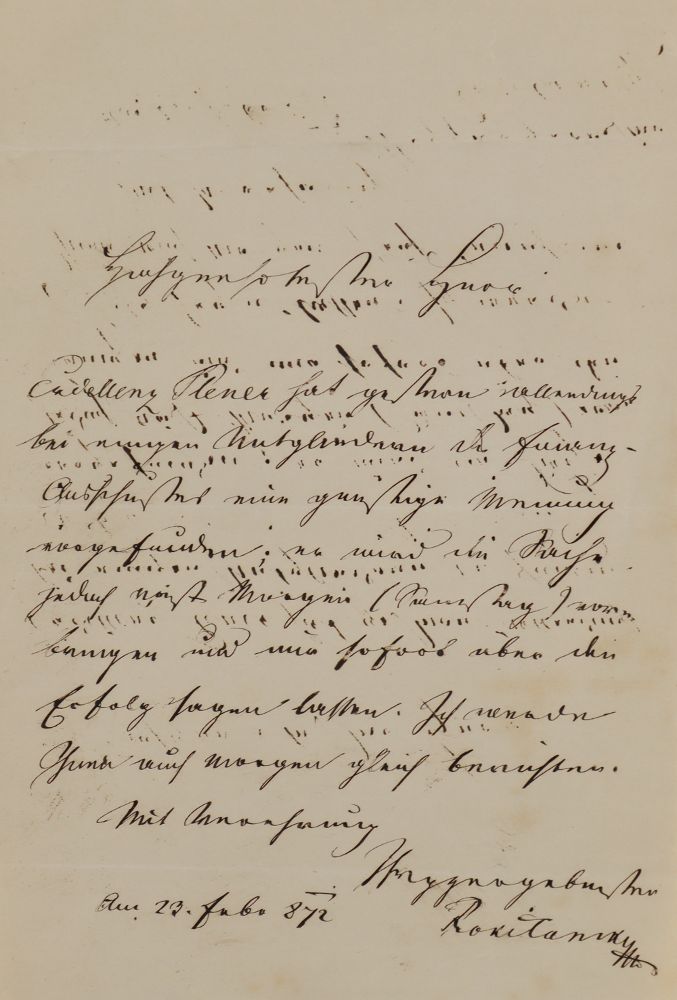 Hochgeehrtester Herr
Excellenz Plener hat gestern allerdings
bei einigen Mitgliedern des Finanz-
Ausschusses eine günstige Meinung
vorgefunden; er wird die Sache
jedoch erst Morgen (Samstag) vor-
bringen und mir sofort über den
Erfolg sagen lassen. Ich werde
Ihnen auch morgen gleich berichten.
Mit Verehrung
Ihr ergebenster
Am 23. Febr 872
Rokitansky